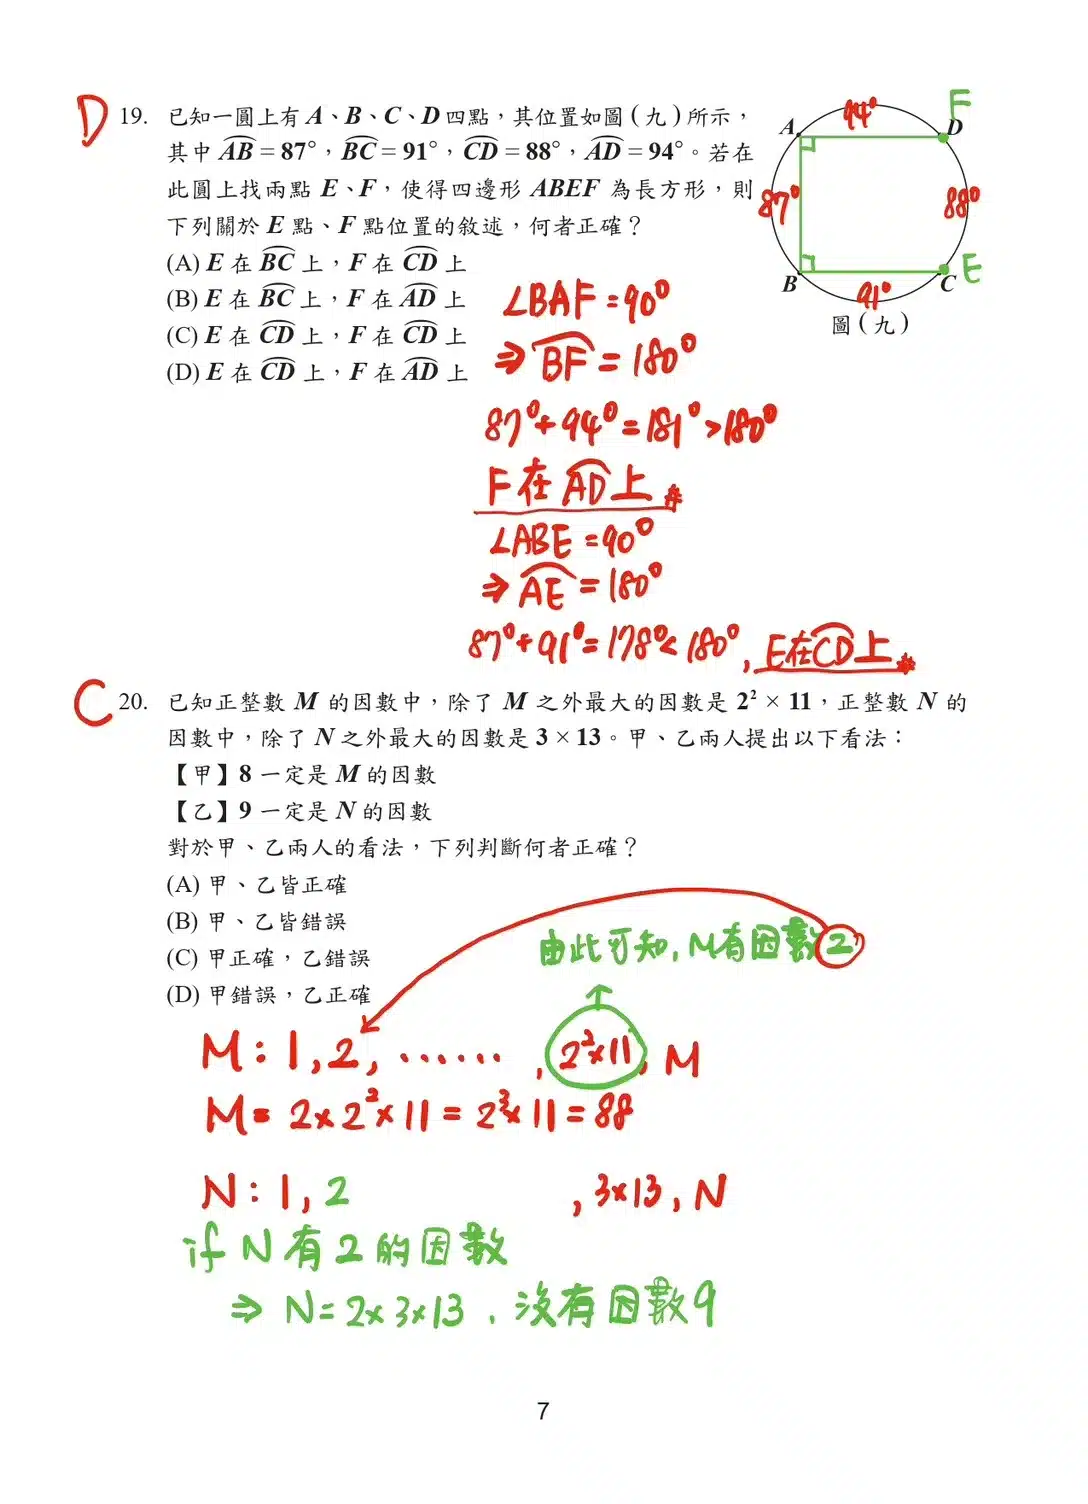 D
19. 已知一圓上有 A、B、C、D 四點，其位置如圖（九）所示，
其中 AB = 87°，BC = 91°，CD = 88°，AD = 94°。若在
此圓上找兩點 E、F，使得四邊形 ABEF 為長方形，則
下列關於 E 點、F 點位置的敘述，何者正確？
(A) E 在 BC 上，F 在 CD 上
(B) E 在 BC 上，F 在 AD 上
(C) E 在 CD 上，F 在 CD 上
(D) E 在 CD 上，F 在 AD 上
94°
F
A
D
87°
88°
B
91°
C
E
圖（九）
∠BAF = 90°
⇒ BF = 180°
87° + 94° = 181° > 180°
F在AD上
∠ABE = 90°
⇒ AE = 180°
87° + 91° = 178° < 180°, E在CD上
C
20. 已知正整數 M 的因數中，除了 M 之外最大的因數是 2² × 11，正整數 N 的
因數中，除了 N 之外最大的因數是 3 × 13。甲、乙兩人提出以下看法：
【甲】8 一定是 M 的因數
【乙】9 一定是 N 的因數
對於甲、乙兩人的看法，下列判斷何者正確？
(A) 甲、乙皆正確
(B) 甲、乙皆錯誤
(C) 甲正確，乙錯誤
(D) 甲錯誤，乙正確
由此可知, M有因數2
M : 1, 2, ...... , 2²×11, M
M = 2×2²×11 = 2³×11 = 88
N : 1, 2 , 3×13, N
if N 有 2 的因數
⇒ N = 2×3×13 , 沒有因數9
7